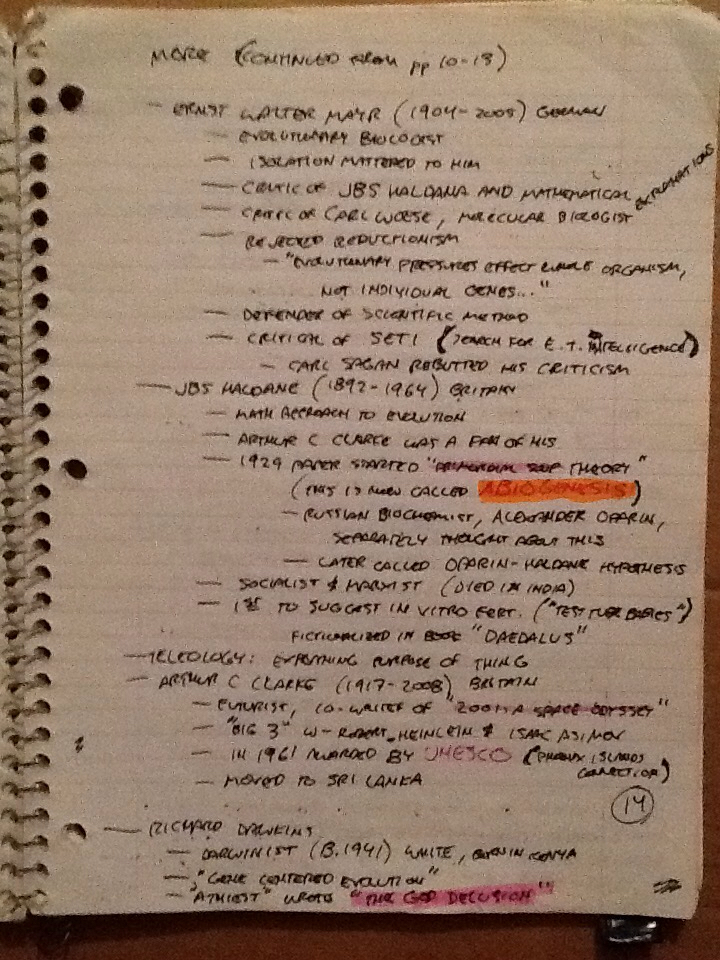 MORE (CONTINUED FROM pp 10-13)
- ERNST WALTER MAYR (1904-2005) GERMAN
- EVOLUTIONARY BIOLOGIST
- ISOLATION MATTERED TO HIM
- CRITIC OF JBS HALDANA AND MATHEMATICAL EXPLANATIONS
- CRITIC OF CARL WOESE, MOLECULAR BIOLOGIST
- REJECTED REDUCTIONISM
- "EVOLUTIONARY PRESSURES EFFECT WHOLE ORGANISM,
NOT INDIVIDUAL GENES..."
- DEFENDER OF SCIENTIFIC METHOD
- CRITICAL OF SETI (SEARCH FOR E.T. INTELLIGENCE)
- CARL SAGAN REBUTTED HIS CRITICISM
- JBS HALDANE (1892-1964) BRITAIN
- MATH APPROACH TO EVOLUTION
- ARTHUR C CLARKE WAS A FAN OF HIS
- 1929 PAPER STARTED "PRIMORDIAL SOUP THEORY"
(THIS IS NOW CALLED ABIOGENESIS)
- RUSSIAN BIOCHEMIST, ALEXANDER OPARIN,
SEPARATELY THOUGHT ABOUT THIS
- LATER CALLED OPARIN-HALDANE HYPOTHESIS
- SOCIALIST & MARXIST (DIED IN INDIA)
- 1ST TO SUGGEST IN VITRO FERT. ("TEST TUBE BABIES")
FICTIONALIZED IN BOOK "DAEDALUS"
- TELEOLOGY: EXPLAINING PURPOSE OF THING
- ARTHUR C CLARKE (1917-2008), BRITAIN
- FUTURIST, CO-WRITER OF "2001: A SPACE ODYSSEY"
- "BIG 3" W- ROBERT HEINLEIN & ISAAC ASIMOV
- IN 1961 AWARDED BY UNESCO (PHOENIX ISLANDS
CONNECTION)
- MOVED TO SRI LANKA
14
- RICHARD DAWKINS
- DARWINIST (B.1941) WHITE, BORN IN KENYA
- "GENE CENTERED EVOLUTION"
- "ATHIEST" WROTE "THE GOD DELUSION"